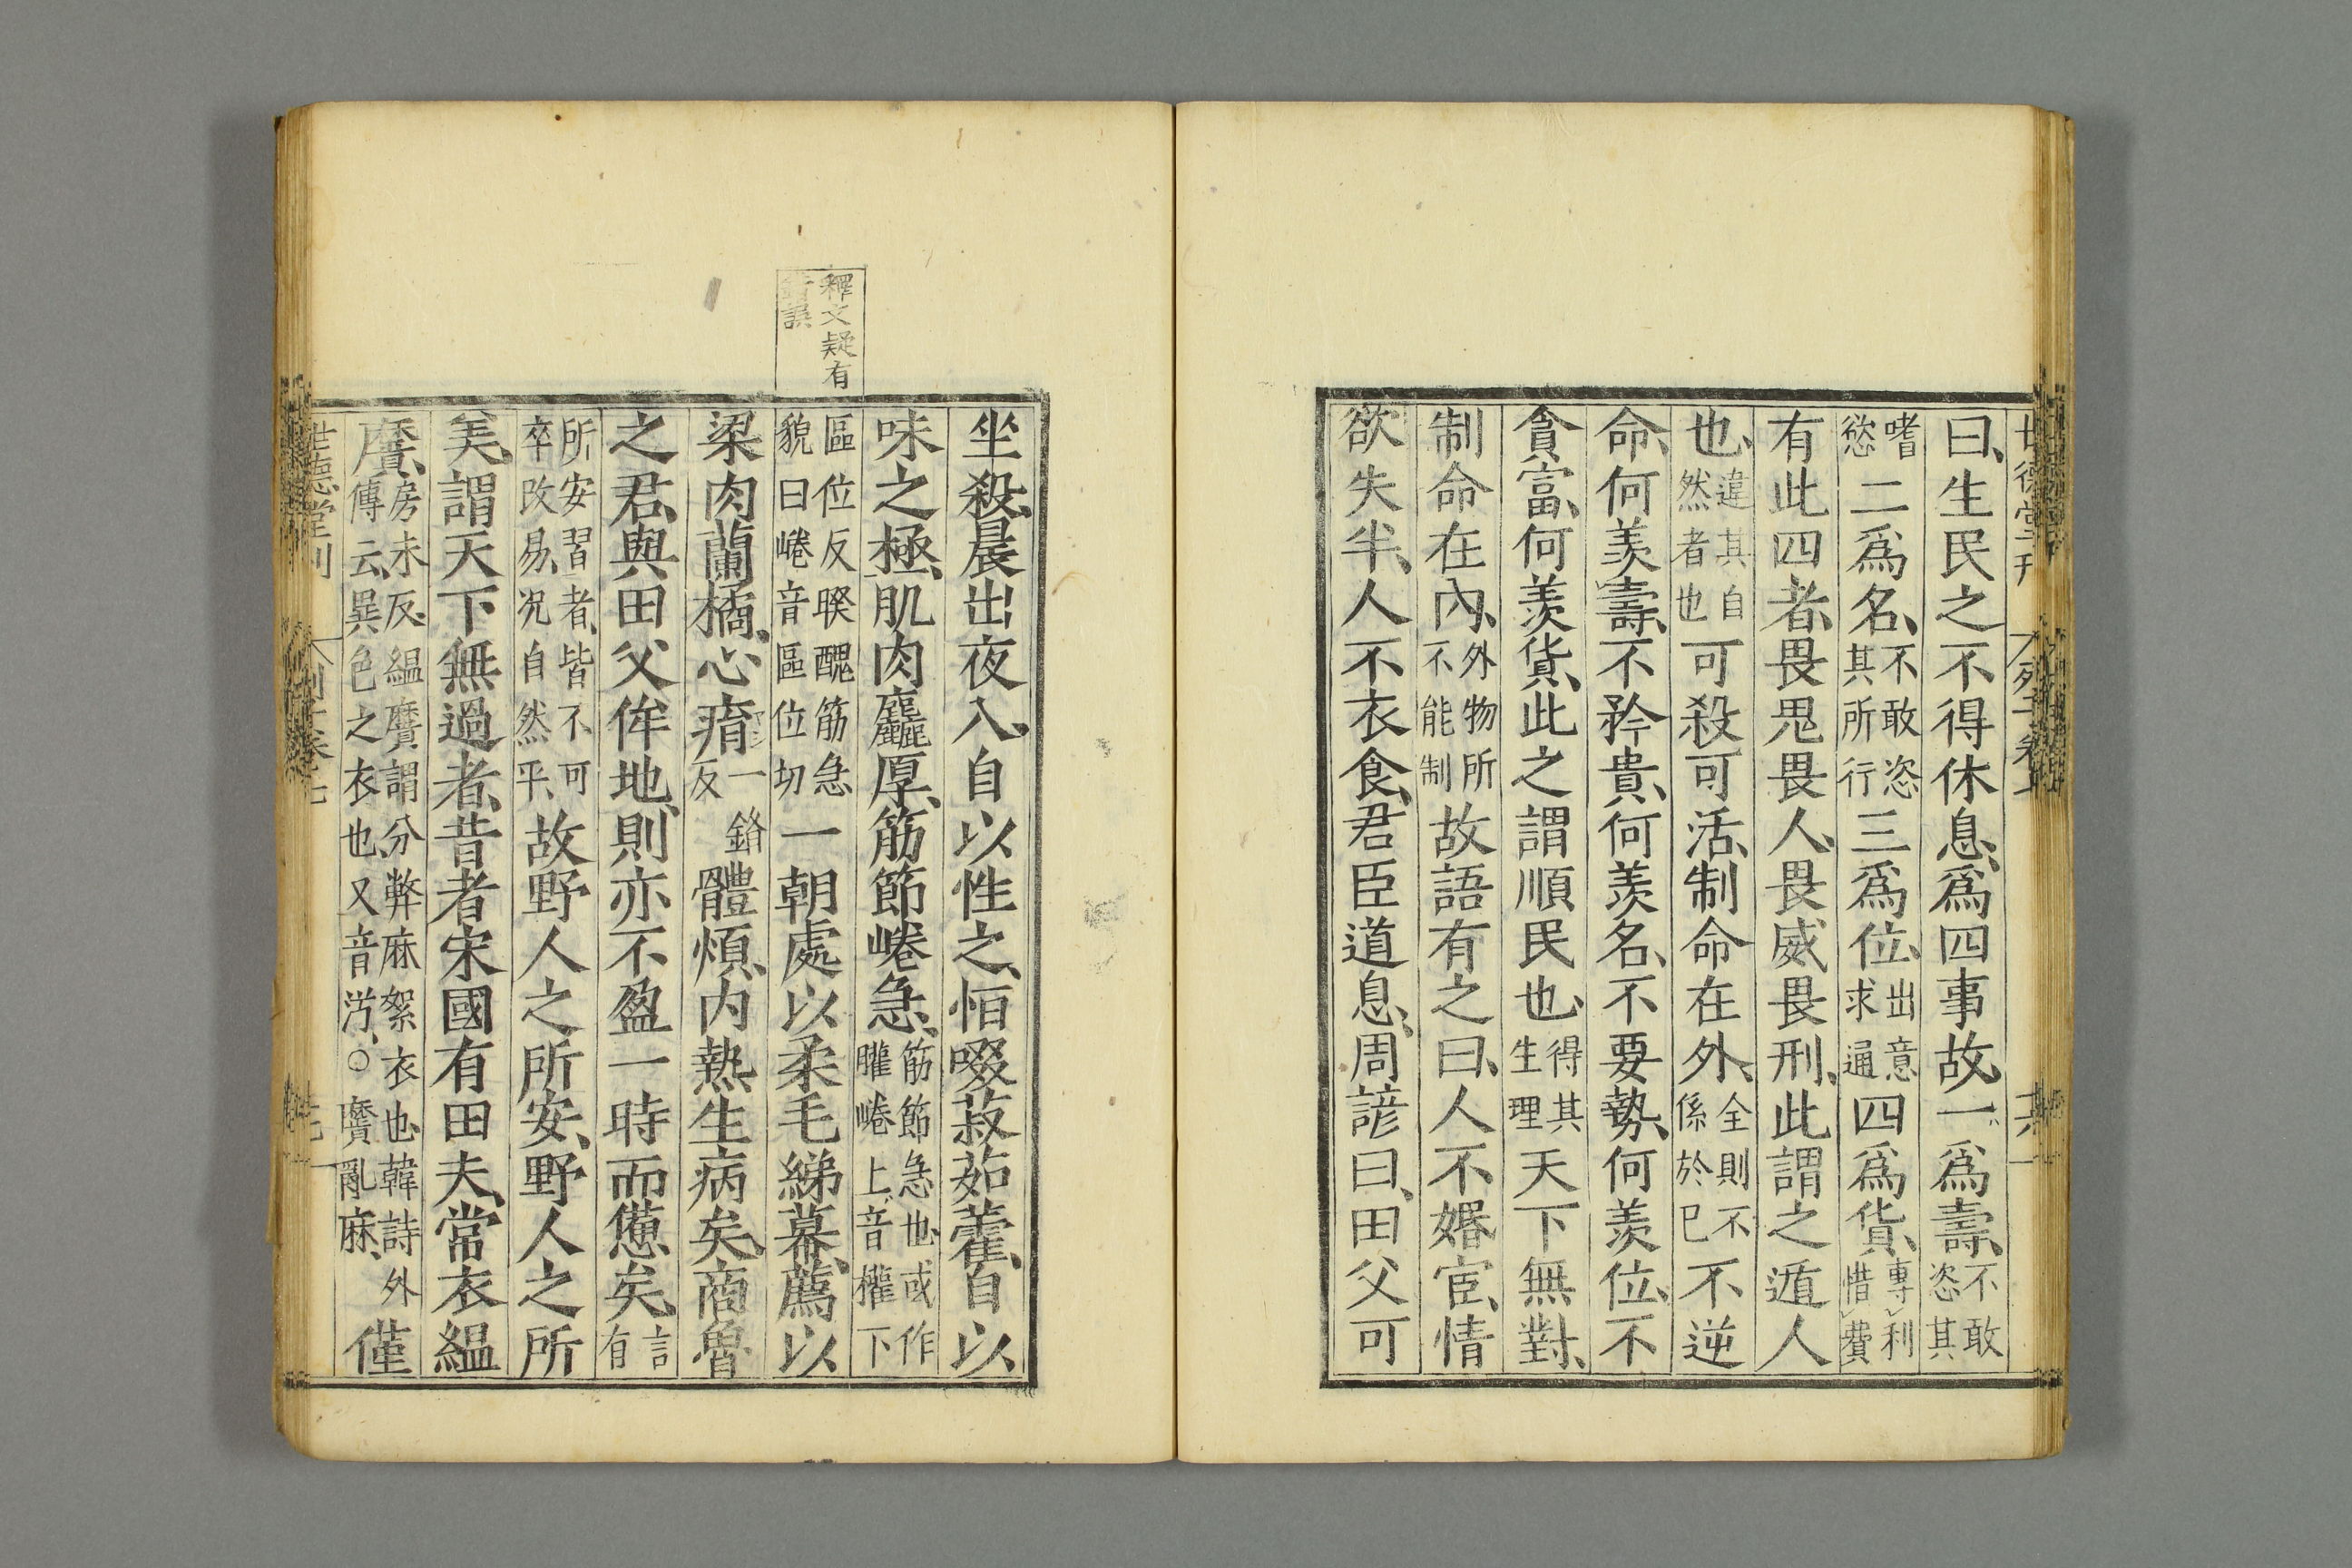 曰生民之不得休息爲四事故一爲壽不敢恣其
嗜慾二爲名不敢恣其所行三爲位出意求通四爲貨專利惜費
有此四者畏鬼畏人畏威畏刑此謂之遁人
也違其自然者也可殺可活制命在外全則不係於己不逆
命何羨壽不矜貴何羨名不要勢何羨位不
貪富何羨貨此之謂順民也得其生理天下無對
制命在內外物所不能制故語有之曰人不婚宦情
欲失半人不衣食君臣道息周諺曰田父可
釋文疑有
錯誤
坐殺晨出夜入自以性之恒啜菽茹藿自以
味之極肌肉麤厚筋節㟡急筋節急也或作䑏㟡上音權下
區位反䁤醜筋急貌曰㟡音區位切一朝處以柔毛綈幕薦以
梁肉蘭橘心㾓一鉻反體煩內熱生病矣商魯
之君與田父侔地則亦不盈一時而憊矣言有
所安習者皆不可卒改易況自然乎故野人之所安野人之所
美謂天下無過者昔者宋國有田夫常衣縕
黂房未反縕黂謂分弊麻絮衣也韓詩外傳云異色之衣也又音汾○黂亂麻僅
世德堂刊